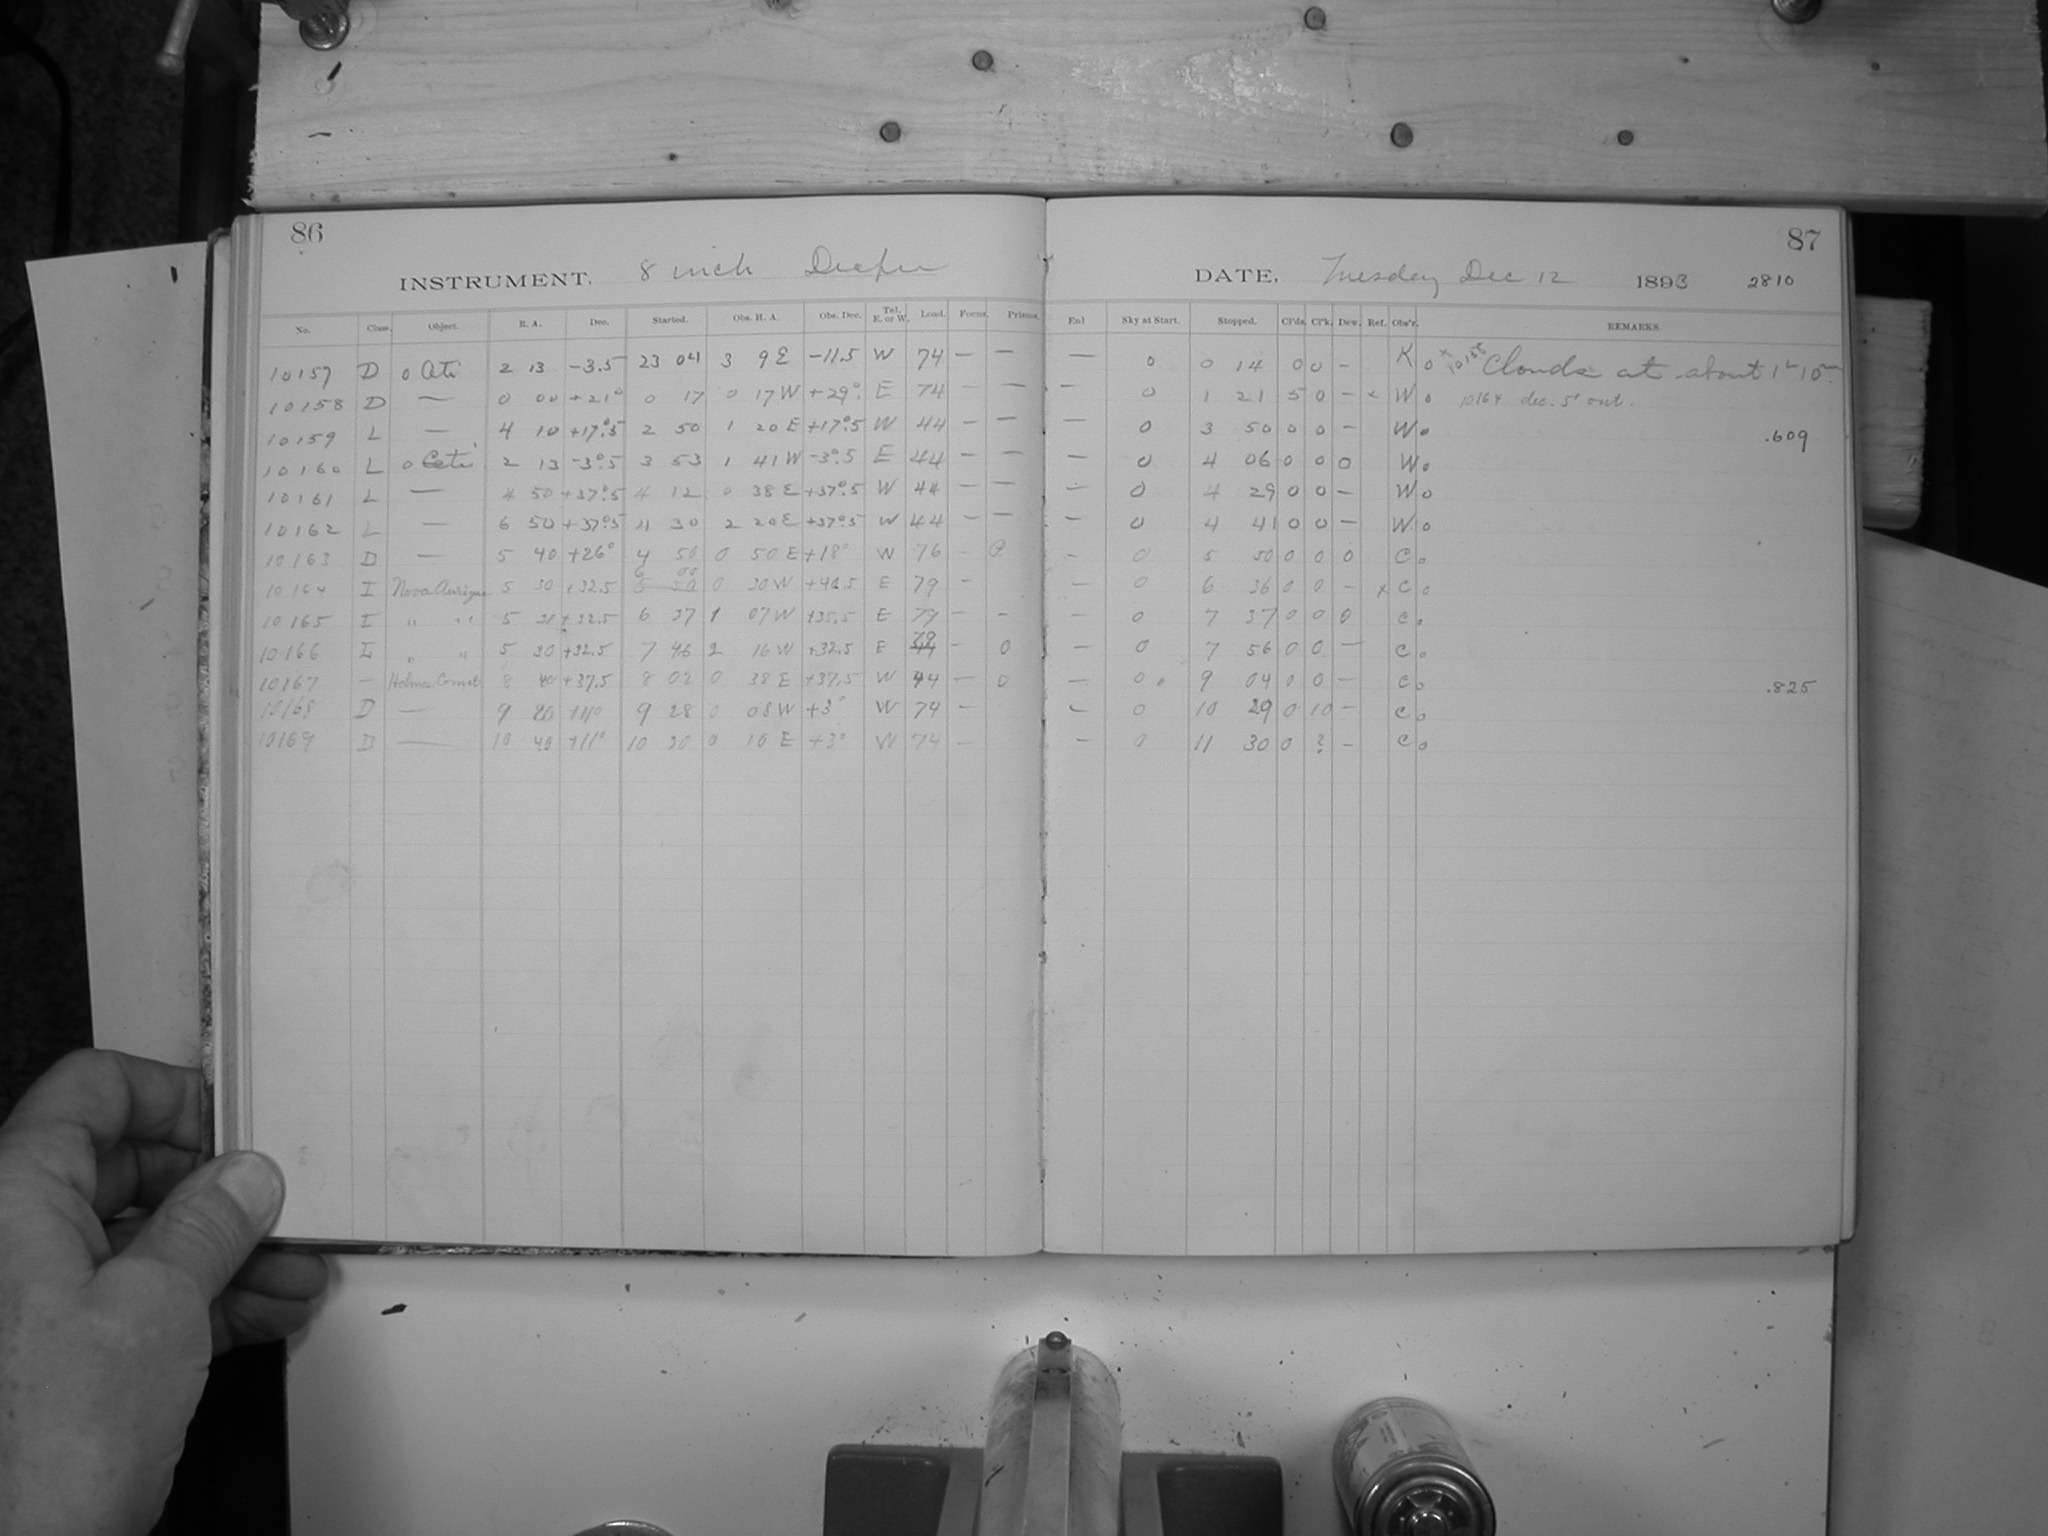 86
INSTRUMENT. 8 inch
No. Class. Object. R. A. Dec. Started. Obs. H. A. Obs. Dec. Tel. E. or W. Load. Focus. Prisms.
10157 D o Ceti 2 13 -3.5 23 04 3 9 E -11.5 W 74 — —
10158 D — 0 00 +21° 0 17 0 17 W +29° E 74 — —
10159 L — 4 10 +17°.5 2 50 1 20 E +17°.5 W 44 — —
10160 L o Ceti 2 13 -3°.5 3 53 1 41 W -3°.5 E 44 — —
10161 L — 4 50 +37°.5 4 12 0 38 E +37°.5 W 44 — —
10162 L — 6 50 +37°.5 4 30 2 20 E +37°.5 W 44 — —
10163 D — 5 40 +26° 4 50 0 50 E +18° W 76 -
6 00
10164 I Nova Aurigae 5 30 +32.5 5 50 0 30 W E 79 -
10165 I " " 5 31 +32.5 6 37 1 07 W +35.5 E 79 - -
10166 I " " 5 30 +32.5 7 46 2 16 W +32.5 E 79 - 0
10167 — Holmes Comet 8 40 +37.5 8 02 0 38 E +37.5 W 44 — 0
10168 D — 9 20 +11° 9 28 0 08 W +3° W 74 —
10169 D — 10 40 +11° 10 30 0 10 E +3° W 74 —
87
DATE, Tuesday Dec 12 1893 2810
Enl Sky at Start. Stopped. Cl'ds. Cl'k. Dew. Ref. Obs'r. REMARKS.
— 0 0 14 0 0 - K o x 10158 Clouds at about 1h 10m.
— 0 1 21 5 0 - x W o 10164 dec. 5° out.
— 0 3 50 0 0 - W o .609
— 0 4 06 0 0 0 W o
— 0 4 29 0 0 - W o
— 0 4 41 0 0 — W o
— 0 5 50 0 0 0 C o
— 0 6 36 0 0 - x C o
— 0 7 37 0 0 0 C o
— 0 7 56 0 0 — C o
— 0 9 04 0 0 — C o .825
— 0 10 29 0 10 - C o
— 0 11 30 0 ? - C o